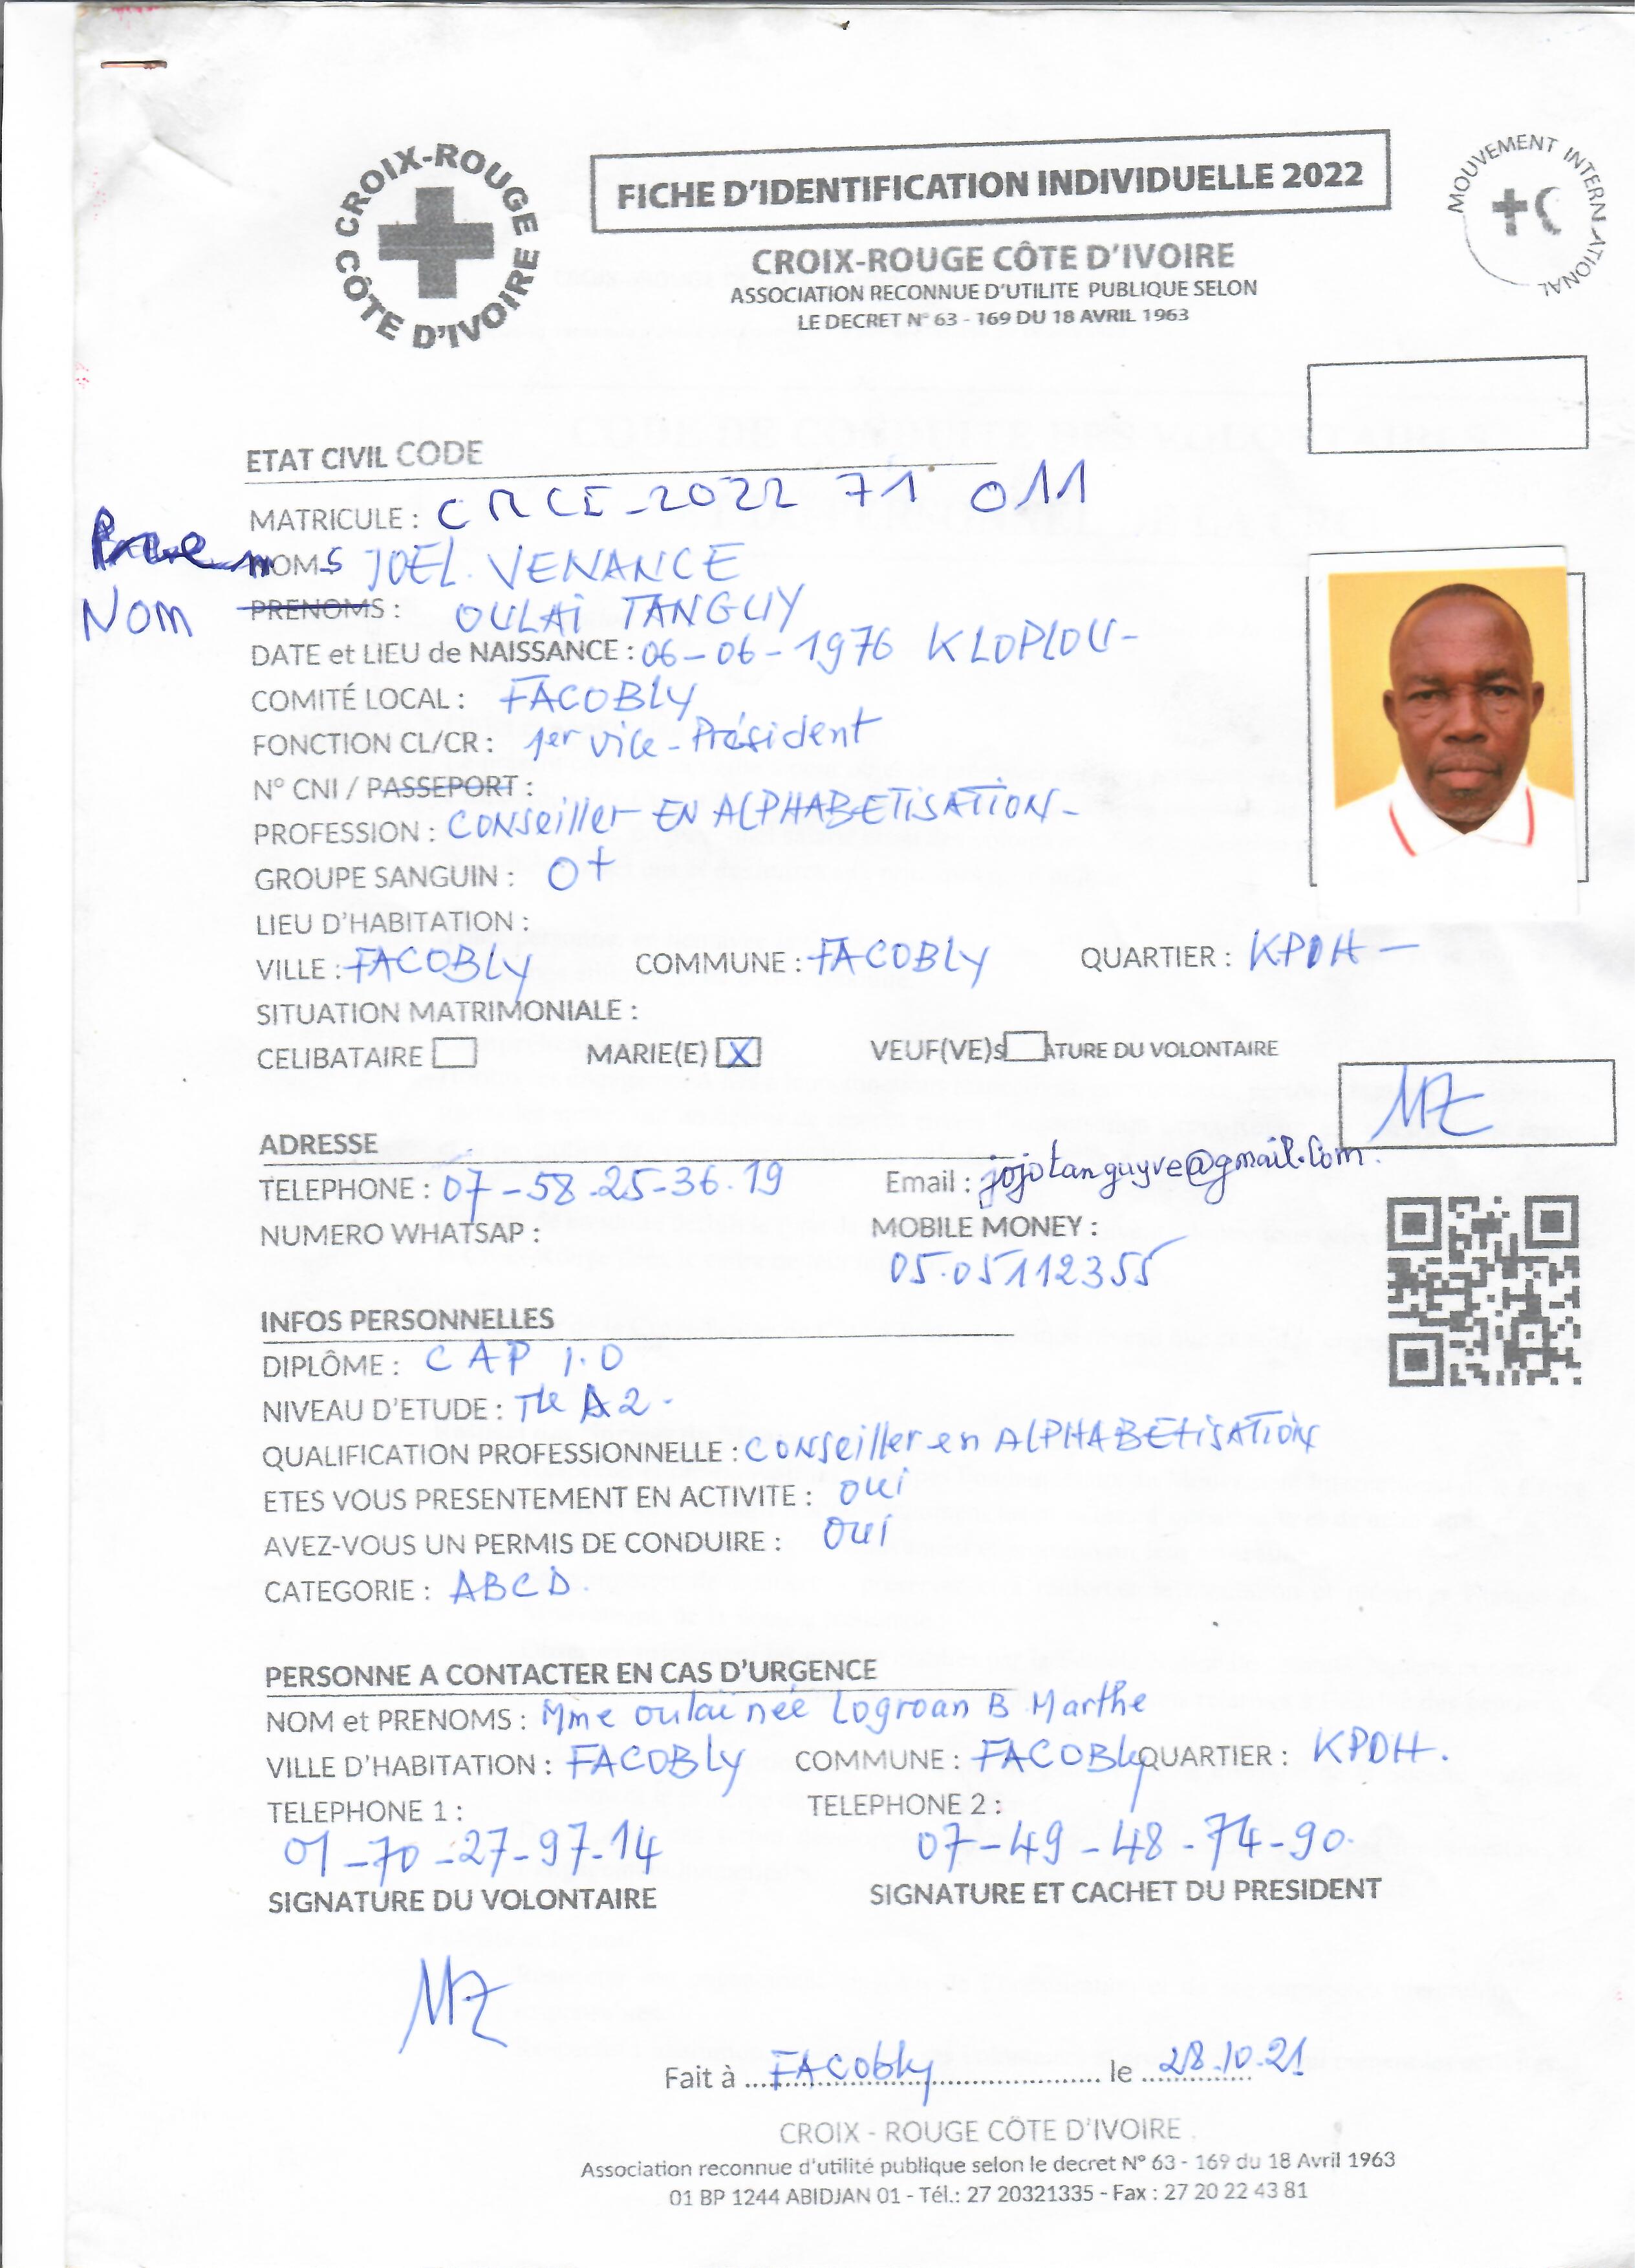 CROIX-ROUGE CÔTE D'IVOIRE
FICHE D'IDENTIFICATION INDIVIDUELLE 2022
MOUVEMENT INTERNATIONAL
CROIX-ROUGE CÔTE D'IVOIRE
ASSOCIATION RECONNUE D'UTILITE PUBLIQUE SELON
LE DECRET N° 63 - 169 DU 18 AVRIL 1963
ETAT CIVIL CODE
MATRICULE : CRCI-2022 71 011
NOMS JOEL VENANCE
Nom PRENOMS : OULAI TANGUY
DATE et LIEU de NAISSANCE : 06-06-1976 KLOPLOU-
COMITÉ LOCAL : FACOBLY
FONCTION CL/CR : 1er vice-Président
N° CNI / PASSEPORT :
PROFESSION : CONSeiller EN ALPHABETISATION-
GROUPE SANGUIN : O+
LIEU D'HABITATION :
VILLE : FACOBLY COMMUNE : FACOBLY QUARTIER : KPDH-
SITUATION MATRIMONIALE :
CELIBATAIRE MARIE(E) X VEUF(VE)S ATURE DU VOLONTAIRE
ADRESSE
TELEPHONE : 07-58-25-36.19 Email : jojotanguyve@gmail.com.
NUMERO WHATSAP : MOBILE MONEY :
05.05112355
INFOS PERSONNELLES
DIPLÔME : CAP I.O
NIVEAU D'ETUDE : Tle A2-
QUALIFICATION PROFESSIONNELLE : CONSeiller en ALPHABETISATION
ETES VOUS PRESENTEMENT EN ACTIVITE : oui
AVEZ-VOUS UN PERMIS DE CONDUIRE : oui
CATEGORIE : ABCD.
PERSONNE A CONTACTER EN CAS D'URGENCE
NOM et PRENOMS : Mme oulaï née Logroan B Marthe
VILLE D'HABITATION : FACOBLY COMMUNE : FACOBLY QUARTIER : KPDH.
TELEPHONE 1 : TELEPHONE 2 :
01-70-27-97-14 07-49-48-74-90.
SIGNATURE DU VOLONTAIRE SIGNATURE ET CACHET DU PRESIDENT
Fait à FACobly le 28.10.21
CROIX - ROUGE CÔTE D'IVOIRE
Association reconnue d'utilité publique selon le decret N° 63 - 169 du 18 Avril 1963
01 BP 1244 ABIDJAN 01 - Tél.: 27 20321335 - Fax : 27 20 22 43 81